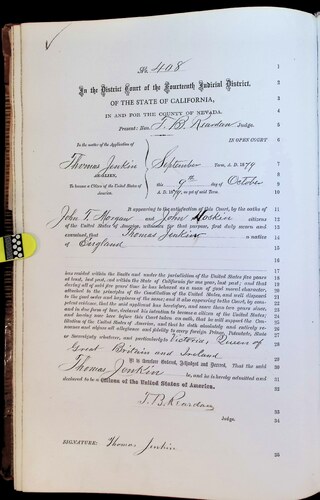 No. 408
In the District Court of the Fourteenth Judicial District,
OF THE STATE OF CALIFORNIA,
IN AND FOR THE COUNTY OF NEVADA.
Present: Hon. T. B. Reardan Judge.
IN OPEN COURT
In the matter of the Application of
Thomas Jenkin
AN ALIEN,
To become a Citizen of the United States of America.
September Term, A. D. 1879
this 9th day of October
A. D. 1879, as yet of said Term.
It appearing to the satisfaction of this Court, by the oaths of
John T. Morgan and John Hoskin citizens
of the United States of America, witnesses for that purpose, first duly sworn and
examined, that Thomas Jenkin a native
of England
has resided within the limits and under the jurisdiction of the United States five years
at least, last past, and within the State of California for one year, last past; and that
during all of said five years' time he has behaved as a man of good moral character,
attached to the principles of the Constitution of the United States, and well disposed
to the good order and happiness of the same; and it also appearing to the Court, by compe-
tent evidence, that the said applicant has heretofore, and more than two years since,
and in due form of law, declared his intention to become a citizen of the United States,
and having now here before this Court taken an oath, that he will support the Con-
stitution of the United States of America, and that he doth absolutely and entirely re-
nounce and abjure all allegiance and fidelity to every foreign Prince, Potentate, State
or Sovereignty whatever, and particularly to Victoria, Queen of
Great Britain and Ireland
It is therefore Ordered, Adjudged and Decreed, That the said
Thomas Jenkin be, and is hereby admitted and
declared to be a Citizen of the United States of America.
T. B. Reardan
Judge.
SIGNATURE: Thomas Jenkin
1
2
3
4
5
6
7
8
9
10
11
12
13
14
15
16
17
18
19
20
21
22
23
24
25
26
27
28
29
30
31
32
33
34
35